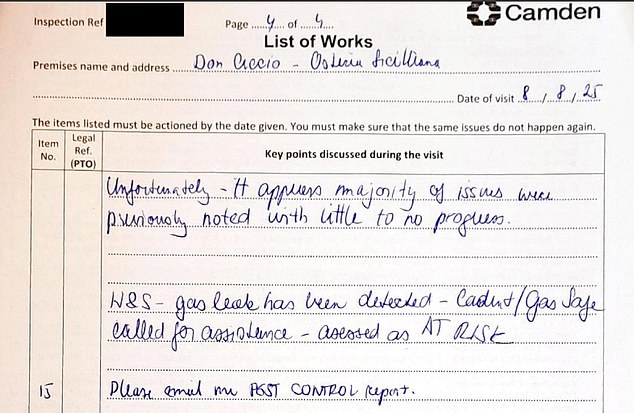 Inspection Ref
Page 4 of 4
Camden
List of Works
Premises name and address Don Ciccio - Osteria Sicilliana
Date of visit 8 / 8 / 25
The items listed must be actioned by the date given. You must make sure that the same issues do not happen again.
Item No.
Legal Ref. (PTO)
Key points discussed during the visit
Unfortunately - it appears majority of issues were
previously noted with little to no progress.
H&S - gas leak has been detected - Cadent/Gas Safe
called for assistance - assessed as AT RISK
15 Please email me PEST CONTROL report.